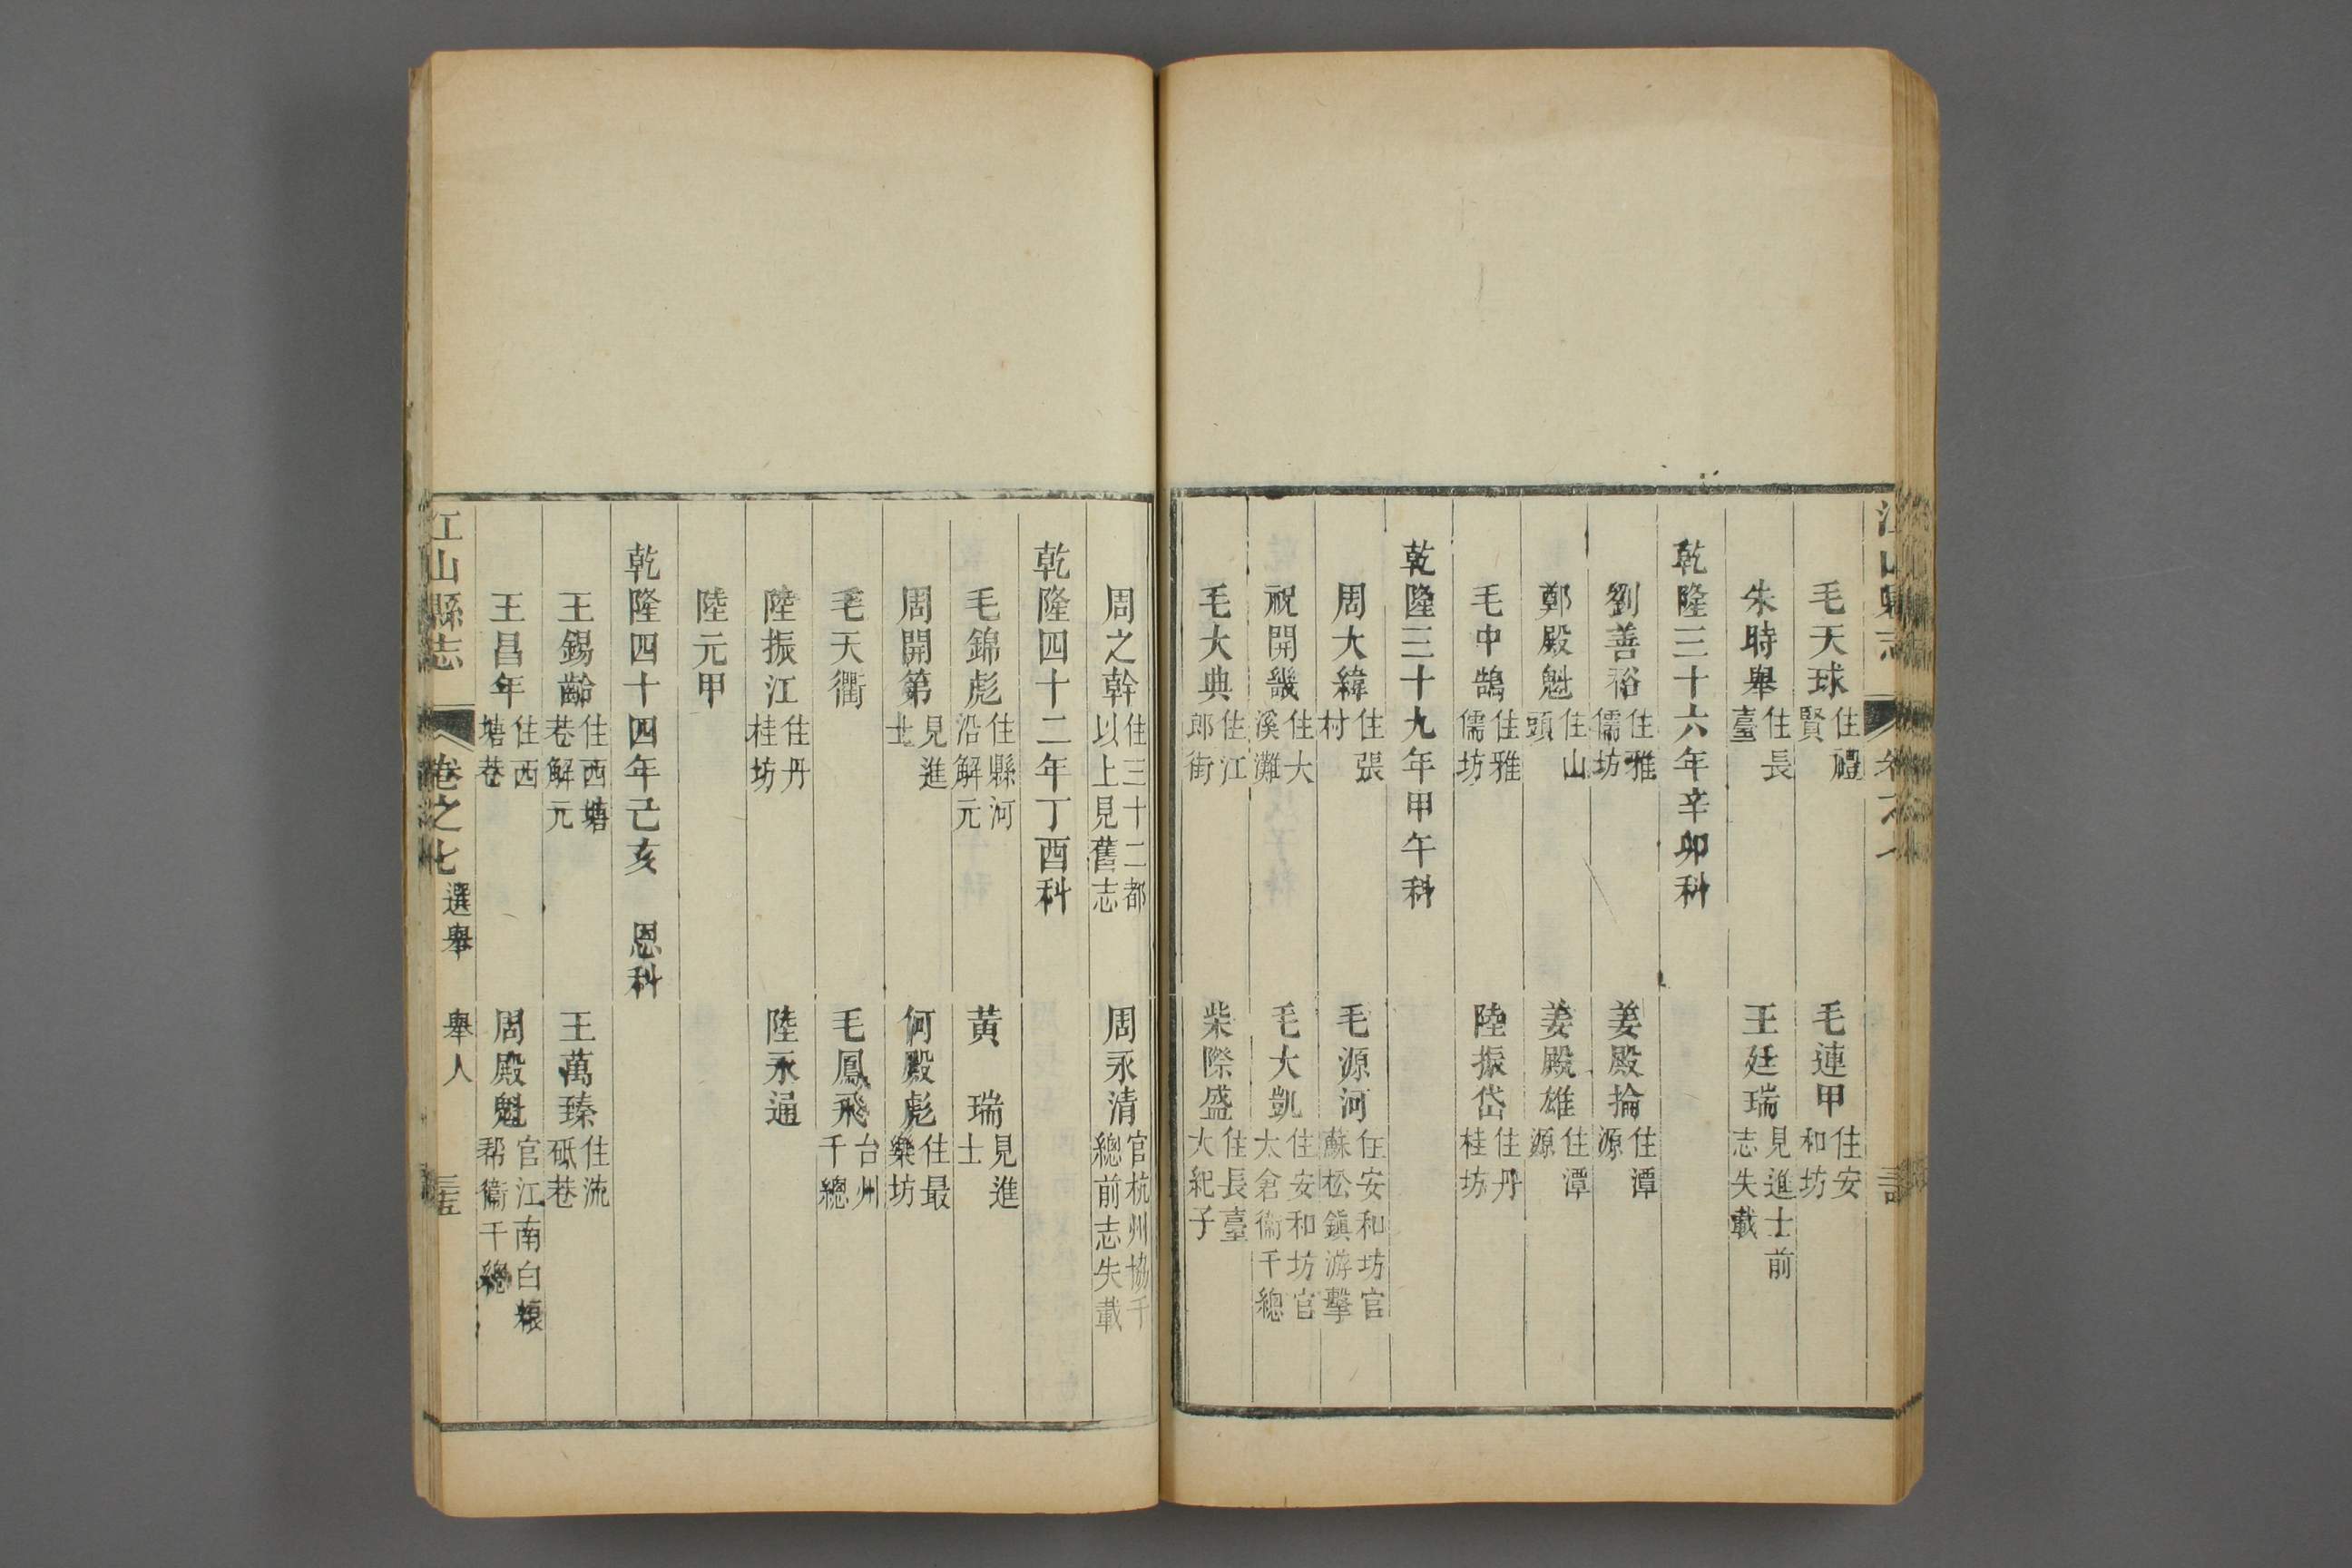 毛天球住禮賢 毛連甲住安和坊
朱時舉住長臺 王廷瑞見進士前志失載
乾隆三十六年辛卯科
劉善裕住雅儒坊 姜殿掄住潭源
鄭殿魁住山頭 姜殿雄住潭源
毛中鵠住雅儒坊 陸振岱住丹桂坊
乾隆三十九年甲午科
周大緯住張村 毛源河住安和坊官蘇松鎭游擊
祝開畿住大溪灘 毛大凱住安和坊官太倉衞千總
毛大典住江郎街 柴際盛住長臺大紀子
周之幹住三十二都以上見舊志 周永清官杭州協千總前志失載
乾隆四十二年丁酉科
毛錦彪住縣河沿解元 黃瑞見進士
周開第見進士 何殿彪住最樂坊
毛天衢 毛鳳飛台州千總
陸振江住丹桂坊 陸永通
陸元甲
乾隆四十四年己亥 恩科
王錫齡住西塘巷解元 王萬臻住流砥巷
王昌年住西塘巷 周殿魁官江南白糧幇衞千總
江山縣志 卷之七 選舉 舉人 三五